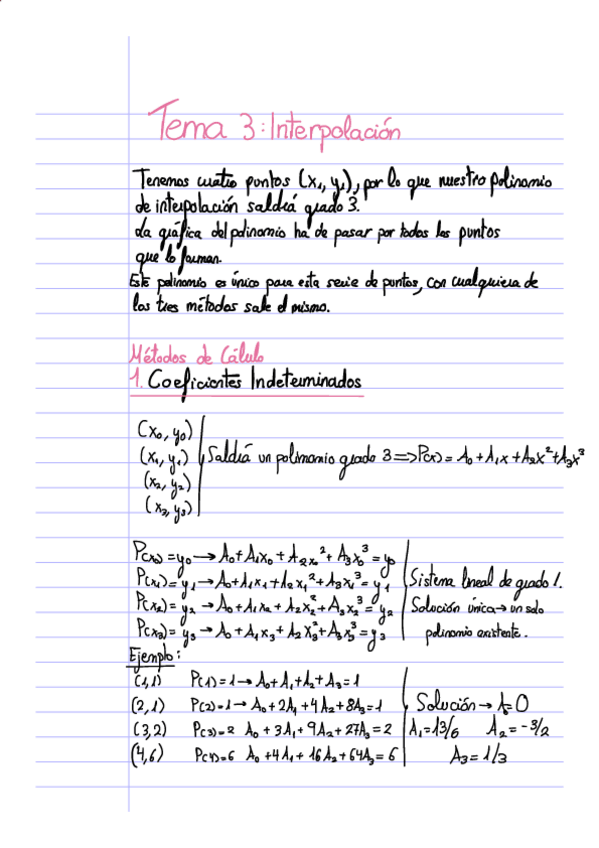 Tema 3: Interpolación
Tenemos cuatro puntos (x₁, y₁), por lo que nuestro polinomio
de interpolación saldrá grado 3.
La gráfica del polinomio ha de pasar por todos los puntos
que lo forman.
Este polinomio es único para esta serie de puntos, con cualquiera de
los tres métodos sale el mismo.
Métodos de Cálculo
1. Coeficientes Indeterminados
(x₀, y₀)
(x₁, y₁) Saldrá un polinomio grado 3 => P(x) = A₀ + A₁x + A₂x² + A₃x³
(x₂, y₂)
(x₃, y₃)
P(x₀) = y₀ → A₀ + A₁x₀ + A₂x₀² + A₃x₀³ = y₀
P(x₁) = y₁ → A₀ + A₁x₁ + A₂x₁² + A₃x₁³ = y₁ Sistema lineal de grado 1.
P(x₂) = y₂ → A₀ + A₁x₂ + A₂x₂² + A₃x₂³ = y₂ Solución única → un solo
P(x₃) = y₃ → A₀ + A₁x₃ + A₂x₃² + A₃x₃³ = y₃ polinomio existente.
Ejemplo:
(1,1) P(1) = 1 → A₀ + A₁ + A₂ + A₃ = 1
(2,1) P(2) = 1 → A₀ + 2A₁ + 4A₂ + 8A₃ = 1 Solución → A₀ = 0
(3,2) P(3) = 2 A₀ + 3A₁ + 9A₂ + 27A₃ = 2 A₁ = 13/6 A₂ = -3/2
(4,6) P(4) = 6 A₀ + 4A₁ + 16A₂ + 64A₃ = 6 A₃ = 1/3